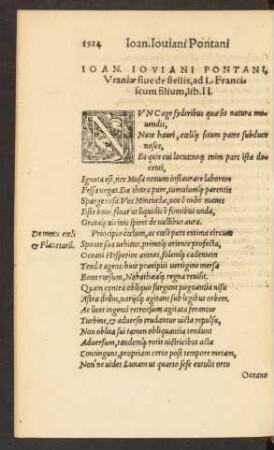 1924 Ioan. Iouiani Pontani
IOAN. IOVIANI PONTANI,
Vraniæ siue de stellis, ad L. Franci-
scum filium, lib. II.
NVNC age syderibus quæ sit natura mo-
uendis,
Nate hauri, cœliq; situm patre subduce
nosce,
Et quie cui locutneq; enim pars ista do-
centi,
Ignota est, tire Musæ notum instaurare laborem
Fessa negat. Da thura puer, tumulumq; parentis
Sparge rosa. Vos Minciadæ, uos ô mihi manes
Este boni, fluat ut liquidi è fontibus unda,
Grataq; uicinis spiret de uallibus aura.
De motu cœli & Planetarū.
Principio cœlum, ac cœli pars extima circum
Sponte sua uehitur, primoq; oriente profecta,
Oceani Hisperios amnes, solemq; cadentem
Tendit agens: hinc præcipiti uertigine mersa
Eoos rursum, Nabathæaq; regna reuisit.
Quam contra obliquo surgunt pugnantia nisu
Astra dribu, uarijsq; agitant sub legibus orbem.
Ac licet ingenti retroactum agitata ferantur
Turbine, & aduerso trudantur uicta repulsu,
Non oblita sui tamen obliquantia tendunt
Aduersum, tandemq; rotis uictricibus acta
Contingunt, propriam certo post tempore metam,
Nonne uides Lunam ut quarto sese extulit ortu
Oceano